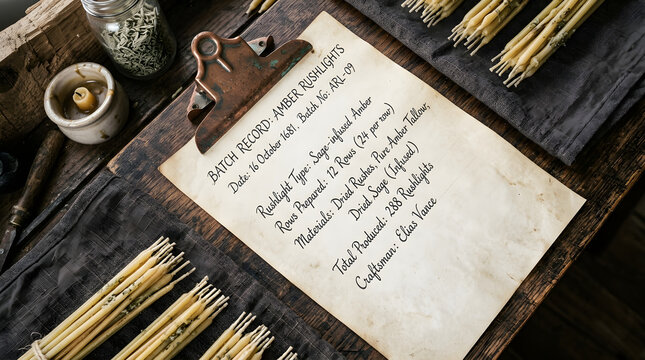 BATCH RECORD: AMBER RUSHLIGHTS
Date: 16 October 1681, Batch No: ARL-09
Rushlight Type: Sage-infused Amber
Rows Prepared: 12 Rows (24 per row)
Materials: Dried Rushes, Pure Amber Tallow,
Dried Sage (Infused)
Total Produced: 288 Rushlights
Craftsman: Elias Vance